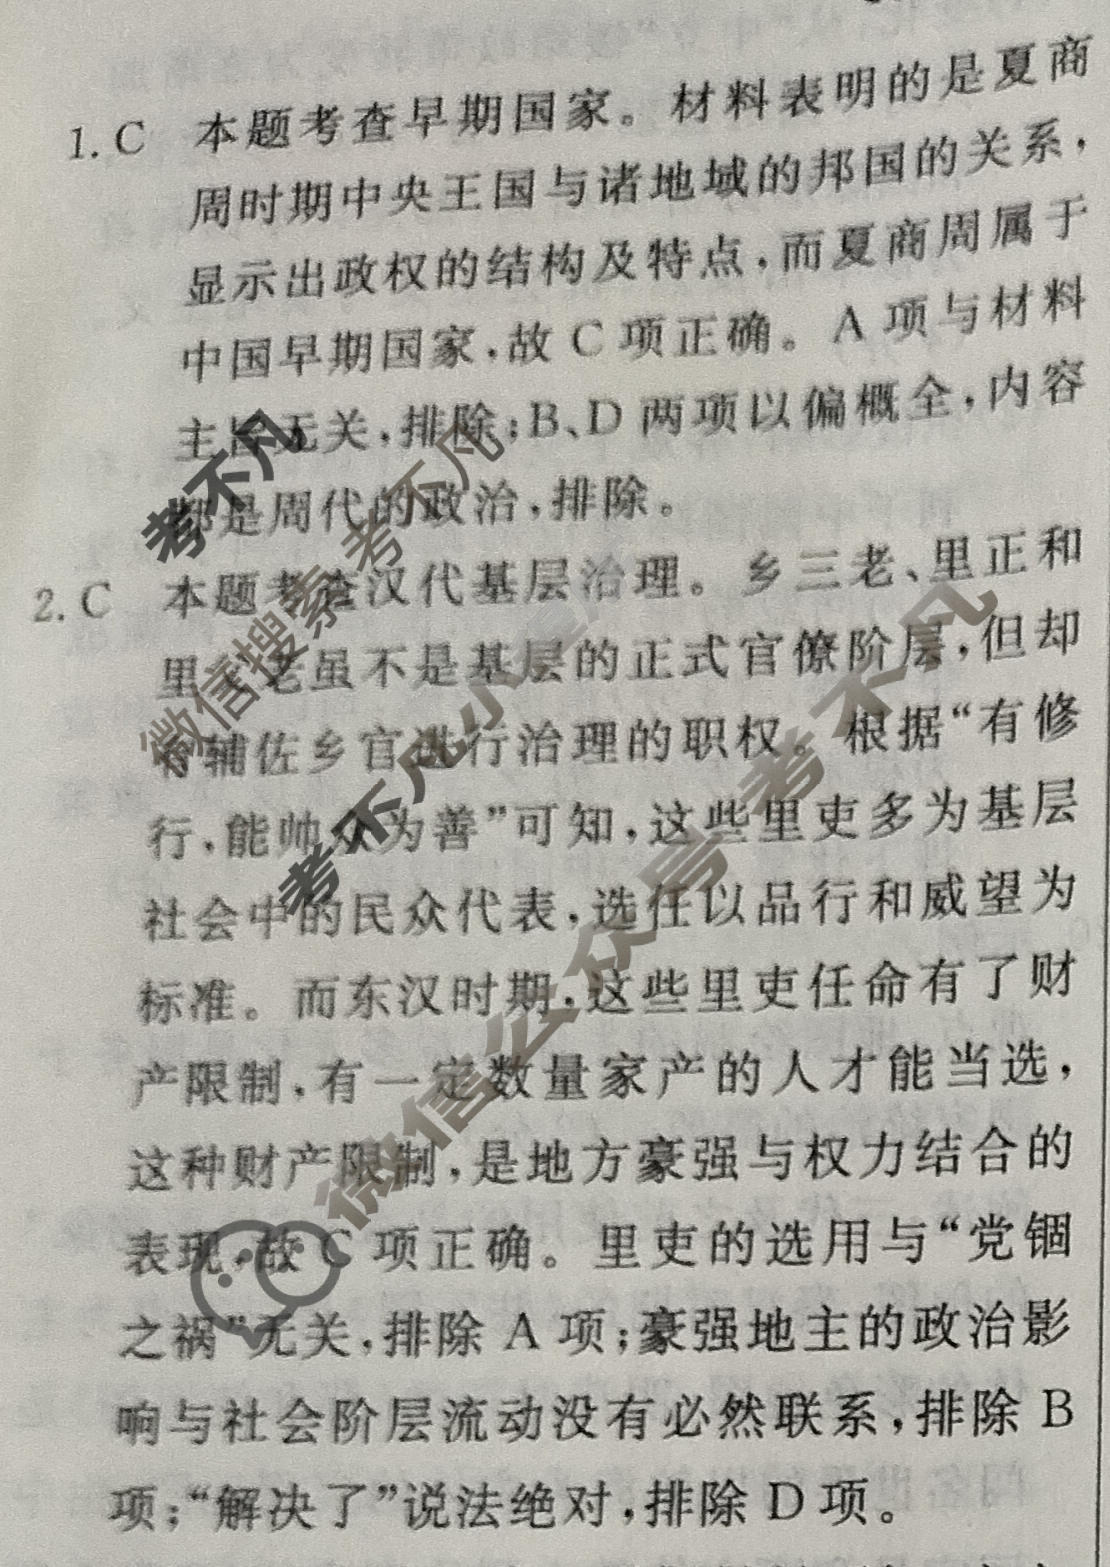 1. C 本题考查早期国家。材料表明的是夏商
周时期中央王国与诸地域的邦国的关系，
显示出政权的结构及特点，而夏商周属于
中国早期国家，故 C 项正确。A 项与材料
主旨无关，排除；B、D 两项以偏概全，内容
都是周代的政治，排除。
2. C 本题考查汉代基层治理。乡三老、里正和
里父老虽不是基层的正式官僚阶层，但却
有辅佐乡官进行治理的职权。根据“有修
行，能帅众为善”可知，这些里吏多为基层
社会中的民众代表，选任以品行和威望为
标准。而东汉时期，这些里吏任命有了财
产限制，有一定数量家产的人才能当选，
这种财产限制，是地方豪强与权力结合的
表现，故 C 项正确。里吏的选用与“党锢
之祸”无关，排除 A 项；豪强地主的政治影
响与社会阶层流动没有必然联系，排除 B
项；“解决了”说法绝对，排除 D 项。
考不凡
微信搜索 考不凡
考不凡小
微信公众号：考不凡